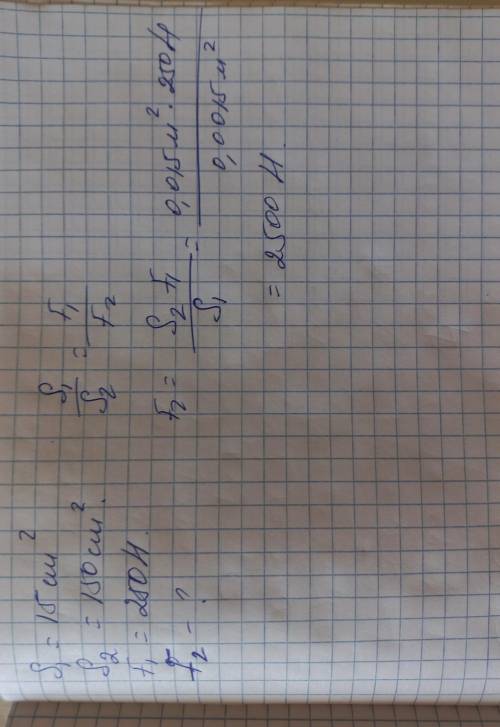 S₁ = 15 см²
S₂ = 150 см².
F₁ = 250 Н.
F₂ - ?
S₁/S₂ = F₁/F₂
F₂ = S₂ F₁/S₁ = 0,015 м² · 250 Н/0,0015 м²
= 2500 Н.